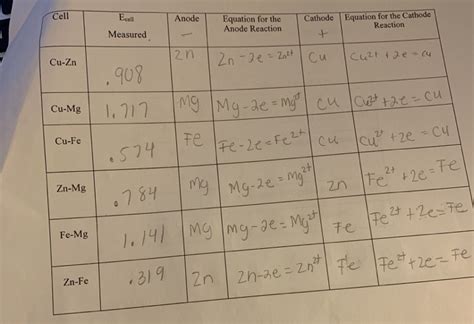 Cell E_cell Anode Equation for the Cathode Equation for the Cathode
Measured - Anode Reaction + Reaction
Cu-Zn .908 Zn Zn - 2e = Zn²⁺ Cu Cu²⁺ + 2e = Cu
Cu-Mg 1.717 Mg Mg - 2e = Mg²⁺ Cu Cu²⁺ + 2e = Cu
Cu-Fe .574 Fe Fe - 2e = Fe²⁺ Cu Cu²⁺ + 2e = Cu
Zn-Mg .784 Mg Mg - 2e = Mg²⁺ Zn Fe²⁺ + 2e = Fe
Fe-Mg 1.141 Mg Mg - 2e = Mg²⁺ Fe Fe²⁺ + 2e = Fe
Zn-Fe .319 Zn Zn - 2e = Zn²⁺ Fe Fe²⁺ + 2e = Fe